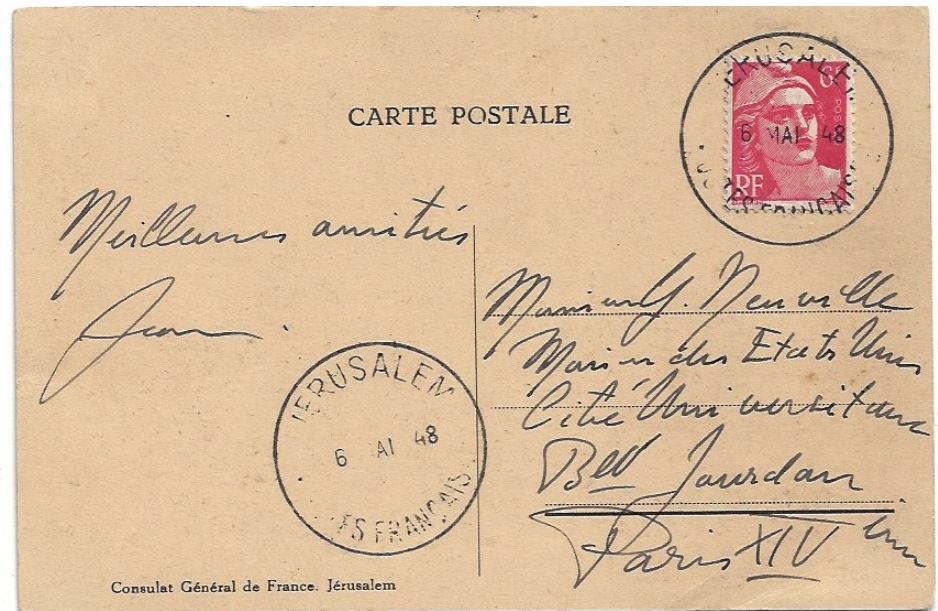 CARTE POSTALE
JERUSALEM
6 MAI 48
POSTES FRANÇAIS
6F
RF
Meilleures amitiés
Jean.
JERUSALEM
6 AI 48
ES FRANÇAIS
Monsieur Neuville
Maison des Etats Unis
Cité Universitaire
Bed Jourdan
Paris XIV em
Consulat Général de France. Jérusalem